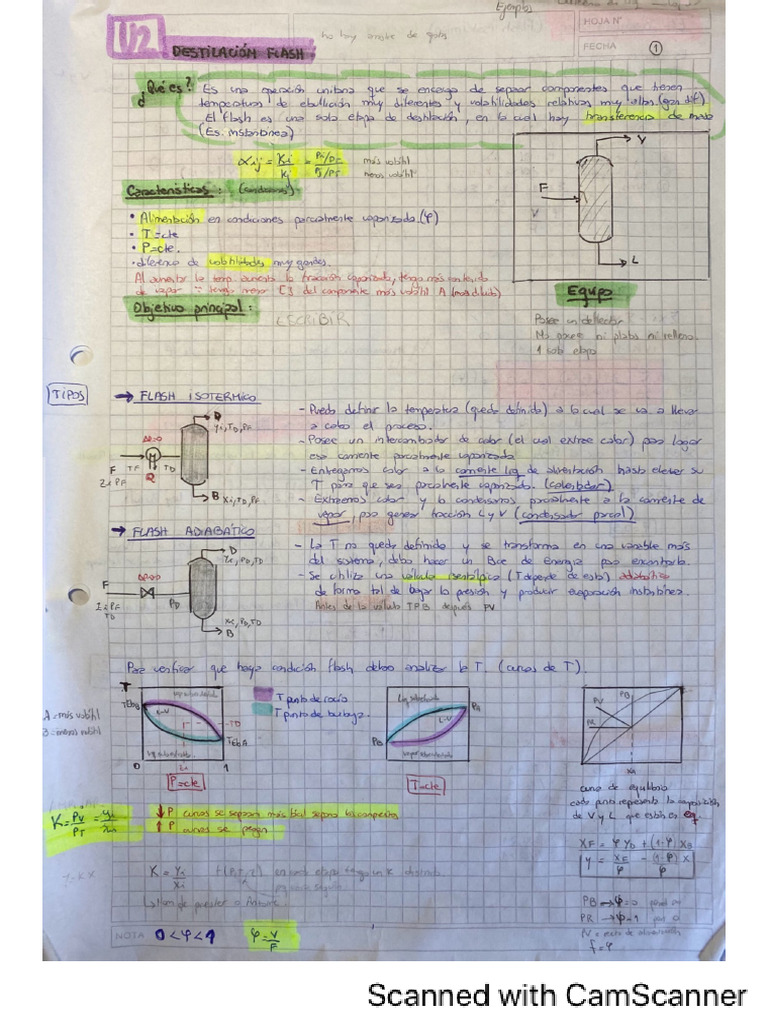 Ejemplos
HOJA N°
FECHA 1
U2
no hay arrastre de gotas
DESTILACIÓN FLASH
¿Qué es? Es una operación unitaria que se encarga de separar componentes que tienen
temperaturas de ebullición muy diferentes y volatilidades relativas muy altas (gran dif)
El flash es una sola etapa de destilación, en la cual hay transferencia de masa
(Es. instantánea)
αij = Ki/Kj = Pi/PT / Pj/PT más volátil
menos volátil
V
F
L
Características: (condiciones)
• Alimentación en condiciones parcialmente vaporizada (φ)
• T=cte
• P=cte.
• diferencia de volatilidades muy grandes.
Al aumentar la temp. aumenta la fracción vaporizada, tengo más contenido
de vapor ∵ tengo menor [ ] del componente más volátil A (más diluido)
Objetivo principal:
ESCRIBIR
Equipo
Posee un deflector
No posee ni platos ni relleno.
1 sola etapa
TIPOS
→ FLASH ISOTERMICO
- Puedo definir la temperatura (queda definida) a la cual se va a llevar
a cabo el proceso.
- Posee un intercambiador de calor (el cual extrae calor) para lograr
esa corriente parcialmente vaporizada.
- Entregamos calor a la corriente líq de alimentación hasta elevar su
T para que sea parcialmente vaporizada. (calentador)
- Extraemos calor y lo condensamos parcialmente a la corriente de
vapor, para generar fracción L y V (condensador parcial)
D
Yi, TD, PF
ΔP=0
F TF TD
Zi PF
Q
B Xi, TD, PF
→ FLASH ADIABÁTICO
- La T no queda definida y se transforma en una variable más
del sistema, debo hacer un Bce de Energía para encontrarla.
- Se utiliza una válvula isentálpica (T depende de esta) adiabática
de forma tal de bajar la presión y producir evaporación instantánea.
Antes de la válvula TPB después PV
D
Yi, PD, TD
F
Zi PF
TD
PD
Xi, PD, TD
B
Para verificar que haya condición flash debo analizar la T. (curvas de T).
A = más volátil
B = menos volátil
T
TEbB
L-V
TD
TEbA
0 Zi 1
P=cte
T punto de rocío
T punto de burbuja.
Líq subenfriado
PA
L-V
PB
T=cte
PV PB
PR
XA
curva de equilibrio
cada punto representa la composición
de V y L que están en eq.
K = PV/PT = yi/xi
↓ P curvas se separan más fácil separo los componentes
↑ P curvas se pegan
K = Yi/Xi
XF = φ YD + (1-φ) XB
y = XF/φ - (1-φ)/φ X
PB → φ=0
PR → φ=1
f = φ
NOTA 0 < φ < 1 φ = V/F
Scanned with CamScanner